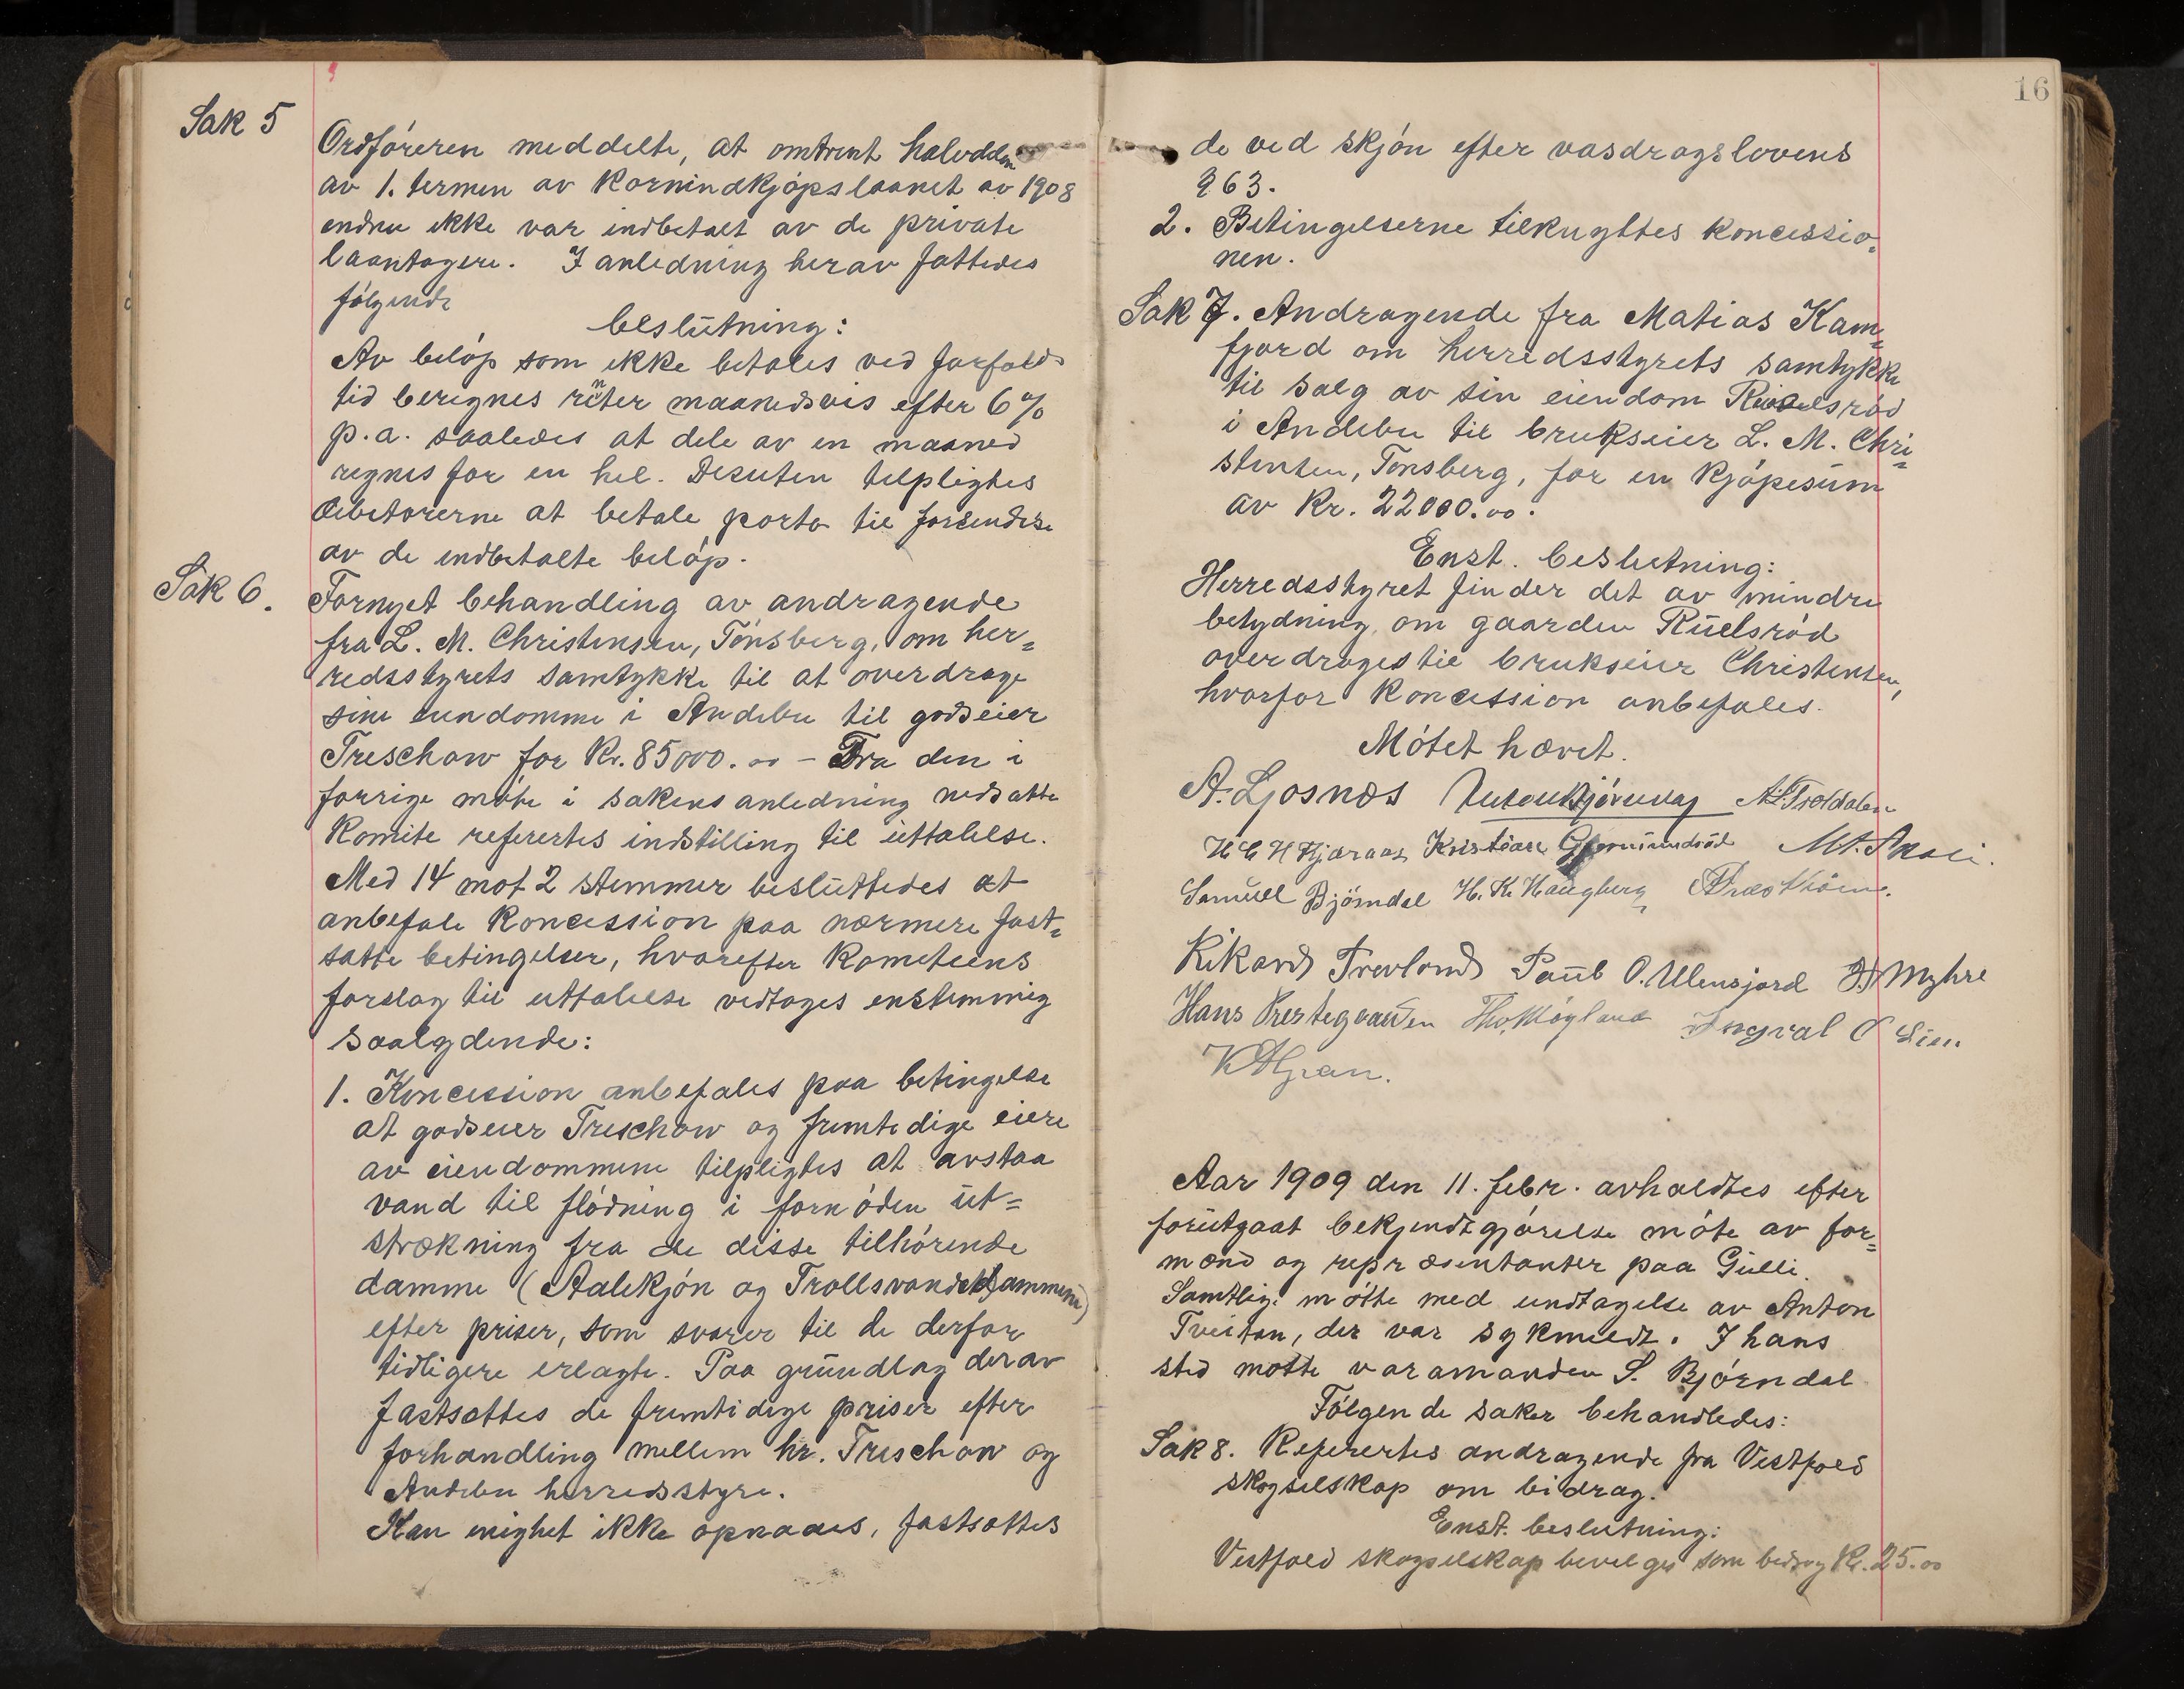 Sak 5
Ordføreren meddelte, at omtrent halvdelen
av 1. termin av kornindkjøpslaanet av 1908
endnu ikke var indbetalt av de private
laantagere. I anledning herav fattedes
følgende
beslutning:
Av beløp som ikke betales ved forfalds
tid beregnes renter maanedsvis efter 6 %
p.a. saaledes at dele av en maaned
regnes for en hel. Desuten tilpligtes
debitorerne at betale porto til forsendelse
av de indbetalte beløp.
Sak 6.
Fornyet behandling av andragende
fra L. M. Christensen, Tønsberg, om her=
redsstyrets samtykke til at overdrage
sine eiendomme i Andebu til godseier
Treschow for Kr. 85000.00 – Fra den i
forrige møte i sakens anledning nedsatte
komite refereres indstilling til uttalelse.
Med 14 mot 2 stemmer besluttedes at
anbefale koncession paa nærmere fast=
satte betingelser, hvorefter komiteens
forslag til uttalelse vedtages enstemmig
saalydende:
1. Koncession anbefales paa betingelse
at godseier Treschow og fremtidige eiere
av eiendommene tilpligtes at avstaa
vand til flødning i fornøden ut=
strækning fra de disse tilhørende
damme (Aalekjøn og Trollsvanddammene)
efter priser, som svarer til de derfor
tidligere erlagte. Paa grundlag derav
fastsættes de fremtidige priser efter
forhandling mellem hr. Treschow og
Andebu herredsstyre.
Kan enighet ikke opnaaes, fastsættes
16
de ved skjøn efter vasdragslovens
§ 63.
2. Betingelserne tilknyttes koncessio=
nen.
Sak 7. Andragende fra Matias Kam=
fjord om herredsstyrets samtykke
til salg av sin eiendom Ruelsrød
i Andebu til brukseier L. M. Chri=
stensen, Tønsberg, for en kjøpesum
av Kr. 22000.00.
Enst. beslutning:
Herredsstyret finder det av mindre
betydning, om gaarden Ruelsrød
overdrages til brukseier Christensen,
hvorfor koncession anbefales.
Møtet hævet.
A. Ljosnæs A. L. Trældalen
H C H Hjaraas Kristian Gjermundrød
Samuel Bjørndal H. K. Haugberg
Rikard Trevland Paul O. Ulensjord Myhre
Hans Prestegaarden Tho. Møyland Ingval O Lie
Aar 1909 den 11. febr. avholdtes efter
forutgaat bekjendtgjørelse møte av for=
mænd og repræsentanter paa Gulli.
Samtlige møtte med undtagelse av Anton
Tveitan, der var sykmeldt. I hans
sted møtte varamanden S. Bjørndal
Følgende saker behandledes:
Sak 8. Refereres andragende fra Vestfold
skogselskap om bidrag.
Enst. beslutning:
Vestfold skogselskap bevilges som bidrag Kr. 25.00